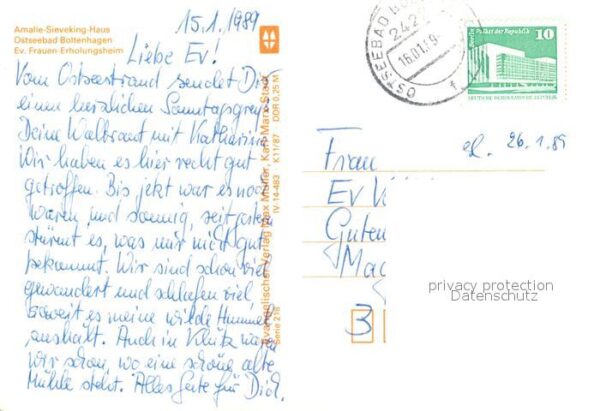 15.1.1989
Amalie-Sieveking-Haus
Ostseebad Boltenhagen
Ev. Frauen-Erholungsheim
Liebe Ev!
Vom Ostseestrand sendet Dir
einen herzlichen Sonntagsgruß
Deine Waltraut mit Katharina
Wir haben es hier recht gut
getroffen. Bis jetzt war es noch
warm und sonnig, seit gestern
stürmt es, was mir nicht gut
bekommt. Wir sind schon viel
gewandert und schlafen viel,
soweit es meine wilde Hummel
aushält. Auch in Klütz waren
wir schon, wo eine schöne alte
Mühle steht. Alles Gute für Dich.
Evangelischer Verlag Max Müller, Karl-Marx-Stadt
Serie 218 IV-14-483 K11/87 DDR 0,25 M
OSTSEEBAD
242
16.01.89
f
Berlin Palast der Republik
10
DEUTSCHE DEMOKRATISCHE REPUBLIK
26.1.89
Frau
Ev
Guten
Mag
3
privacy protection
Datenschutz